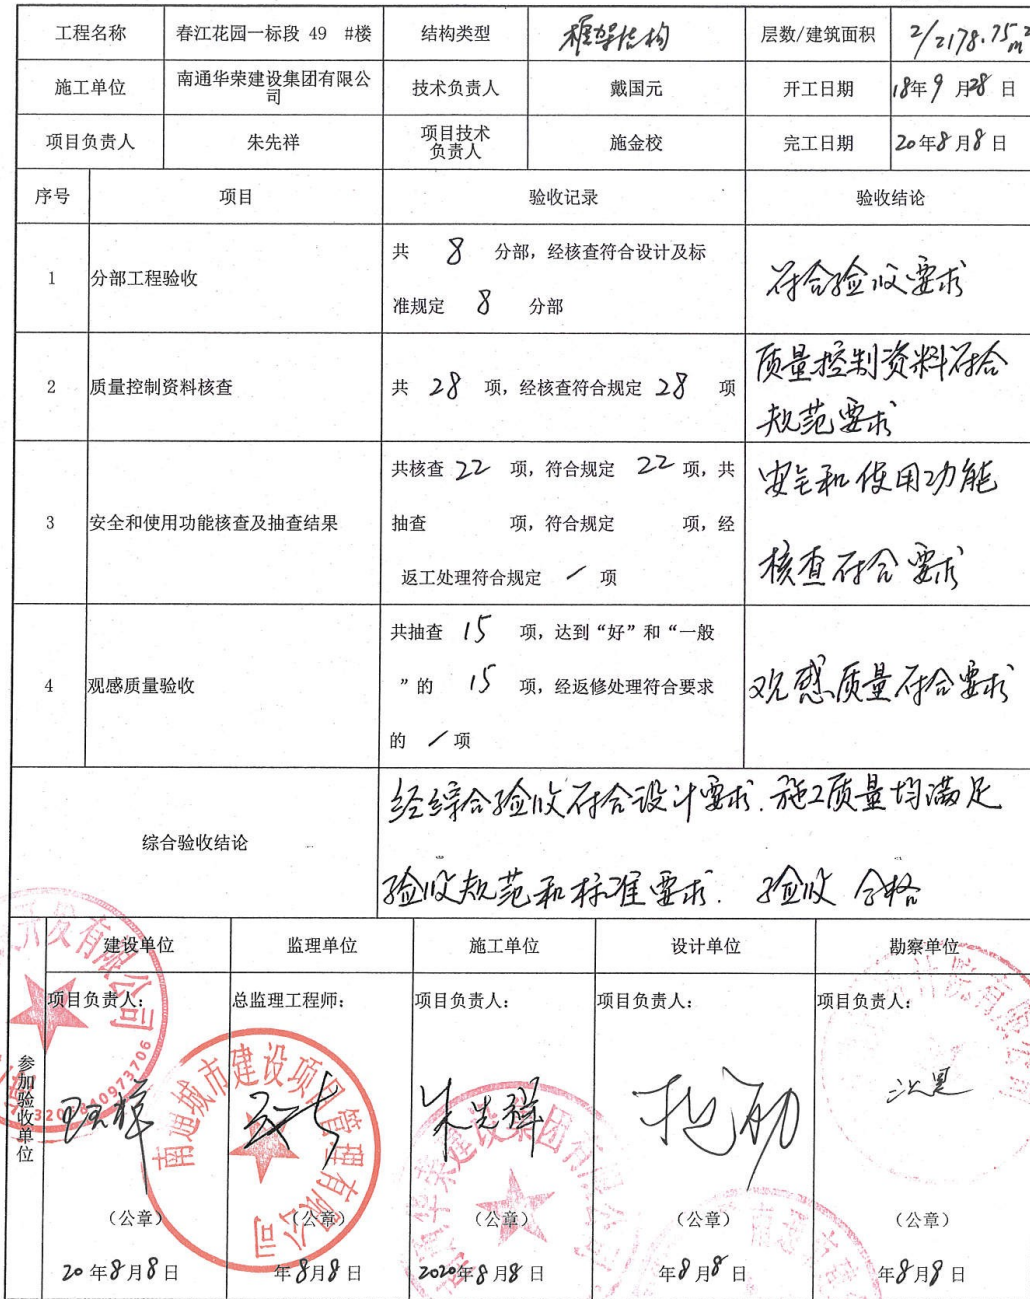 工程名称 春江花园一标段 49 #楼 结构类型 框架结构 层数/建筑面积 2/2178.75m²
施工单位 南通华荣建设集团有限公
司 技术负责人 戴国元 开工日期 18年9月28日
项目负责人 朱先祥 项目技术
负责人 施金校 完工日期 20年8月8日
序号 项目 验收记录 验收结论
1 分部工程验收 共 8 分部，经核查符合设计及标
准规定 8 分部 符合验收要求
2 质量控制资料核查 共 28 项，经核查符合规定 28 项 质量控制资料符合
规范要求
3 安全和使用功能核查及抽查结果 共核查 22 项，符合规定 22 项，共
抽查 项，符合规定 项，经
返工处理符合规定 / 项 安全和使用功能
核查符合要求
4 观感质量验收 共抽查 15 项，达到“好”和“一般
”的 15 项，经返修处理符合要求
的 / 项 观感质量符合要求
综合验收结论 经综合验收符合设计要求.施工质量均满足
验收规范和标准要求. 验收 合格
参加验收单位
建设单位 监理单位 施工单位 设计单位 勘察单位
项目负责人： 总监理工程师： 项目负责人： 项目负责人： 项目负责人：
朱先祥
开发有限公司
南通城市建设项目管理有限公司
华荣建设集团有限公司
（公章） （公章） （公章） （公章） （公章）
20年8月8日 年8月8日 2020年8月8日 年8月8日 年8月8日